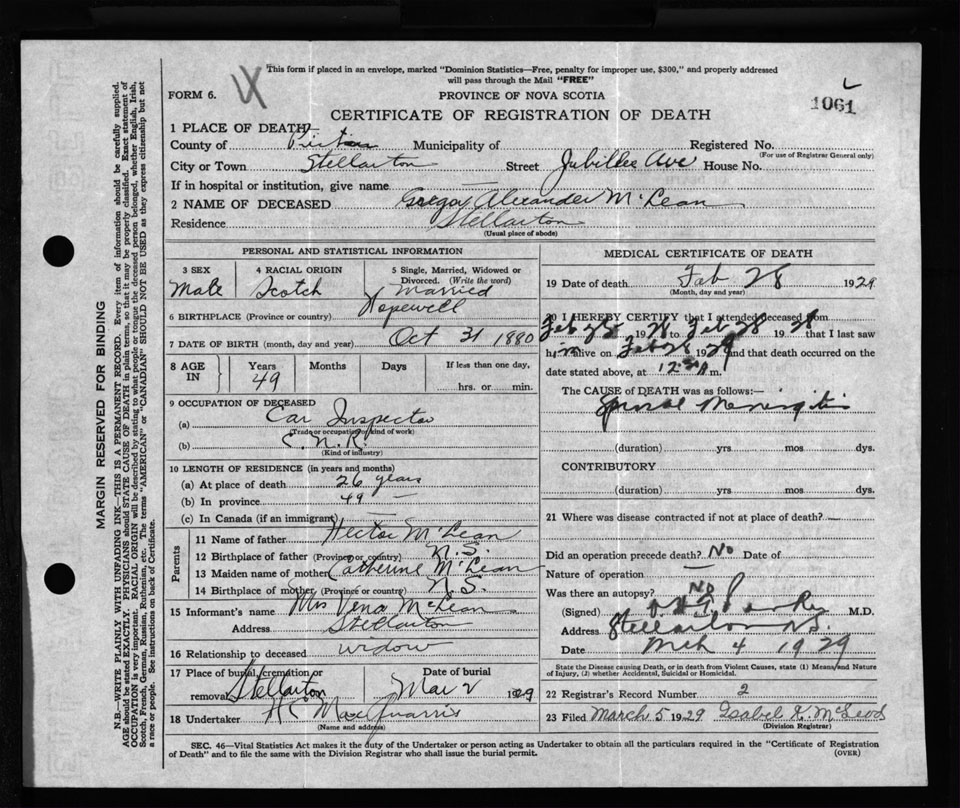 This form if placed in an envelope, marked "Dominion Statistics—Free, penalty for improper use, $300," and properly addressed
will pass through the Mail "FREE"
FORM 6.
PROVINCE OF NOVA SCOTIA
1061
CERTIFICATE OF REGISTRATION OF DEATH
1 PLACE OF DEATH—
County of Pictou Municipality of Registered No.
(For use of Registrar General only)
City or Town Stellarton Street Jubillee Ave House No.
If in hospital or institution, give name —
2 NAME OF DECEASED Gregor Alexander McLean
Residence Stellarton
(Usual place of abode)
PERSONAL AND STATISTICAL INFORMATION
3 SEX 4 RACIAL ORIGIN 5 Single, Married, Widowed or
Divorced. (Write the word)
Male Scotch Married
6 BIRTHPLACE (Province or country) Hopewell
7 DATE OF BIRTH (month, day and year) Oct 31 1880
8 AGE IN Years Months Days If less than one day,
49 hrs. or min.
9 OCCUPATION OF DECEASED
(a) Car Inspector
(Trade or occupation or kind of work)
(b) C.N.R.
(Kind of industry)
10 LENGTH OF RESIDENCE (in years and months)
(a) At place of death 26 years
(b) In province 49 —
(c) In Canada (if an immigrant)
Parents
11 Name of father Hector McLean
12 Birthplace of father (Province or country) N.S.
13 Maiden name of mother Catherine McLean
14 Birthplace of mother (Province or country) N.S.
15 Informant's name Mrs Vena McLean
Address Stellarton
16 Relationship to deceased widow
17 Place of burial, cremation or Date of burial
removal Stellarton Mar 2 1929
18 Undertaker
(Name and address)
MEDICAL CERTIFICATE OF DEATH
19 Date of death Feb 28 1929
(Month, day and year)
20 I HEREBY CERTIFY that I attended deceased from
Feb 28 to Feb 28 19 that I last saw
him alive on Feb 28 1929 and that death occurred on the
date stated above, at m.
The CAUSE of DEATH was as follows:—
Spinal Meningitis
(duration) yrs mos dys.
CONTRIBUTORY
(duration) yrs mos dys.
21 Where was disease contracted if not at place of death? —
Did an operation precede death? No Date of
Nature of operation —
Was there an autopsy? No
(Signed) M.D.
Address Stellarton N.S.
Date Mch 4 1929
State the Disease causing Death, or in death from Violent Causes, state (1) Means and Nature
of Injury, (2) whether Accidental, Suicidal or Homicidal.
22 Registrar's Record Number 2
23 Filed March 5 1929 Isabel McLeod
(Division Registrar)
SEC. 46—Vital Statistics Act makes it the duty of the Undertaker or person acting as Undertaker to obtain all the particulars required in the "Certificate of Registration
of Death" and to file the same with the Division Registrar who shall issue the burial permit.
(OVER)
MARGIN RESERVED FOR BINDING
N.B.—WRITE PLAINLY WITH UNFADING INK—THIS IS A PERMANENT RECORD. Every item of information should be carefully supplied.
AGE should be stated EXACTLY. PHYSICIANS should STATE CAUSE OF DEATH in plain terms, so that it may be properly classified. Exact statement of
OCCUPATION is very important. RACIAL ORIGIN will be described by stating to what people or tongue the deceased person belonged, whether English, Irish,
Scotch, French, German, Russian, Ruthenian, etc. The terms "AMERICAN" or "CANADIAN" SHOULD NOT BE USED as they express citizenship but not
a race or people. See instructions on back of Certificate.